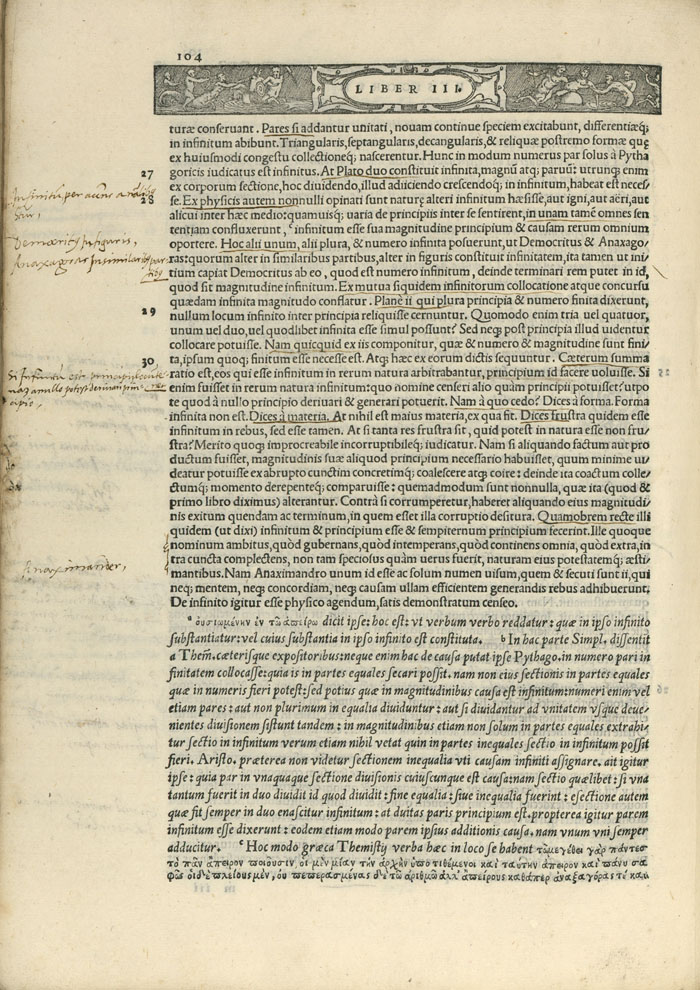 104
LIBER III.
turæ conseruant. Pares si addantur unitati, nouam continue speciem excitabunt, differentiæq;
in infinitum abibunt. Triangularis, septangularis, decangularis, & reliquæ postremo formæ quę
ex huiusmodi congestu collectioneq; nascerentur. Hunc in modum numerus par solus à Pytha
27
goricis iudicatus est infinitus. At Plato duo constituit infinita, magnũ atq; paruũ: utrunq; enim
ex corporum sectione, hoc diuidendo, illud adiiciendo crescendoq; in infinitum, habeat est neces/
28
se. Ex physicis autem nonnulli opinati sunt naturę alteri infinitum hæsisse, aut igni, aut aëri, aut
alicui inter hæc medio: quamuisq; uaria de principiis inter se sentirent, in unam tamẽ omnes sen
tentiam confluxerunt, ᶜ infinitum esse sua magnitudine principium & causam rerum omnium
oportere. Hoc alii unum, alii plura, & numero infinita posuerunt, ut Democritus & Anaxago/
ras: quorum alter in similaribus partibus, alter in figuris constituit infinitatem, ita tamen ut ini/
tium capiat Democritus ab eo, quod est numero infinitum, deinde terminari rem putet in id,
quod sit magnitudine infinitum. Ex mutua siquidem infinitorum collocatione atque concursu
quædam infinita magnitudo conflatur. Planè ii qui plura principia & numero finita dixerunt,
29
nullum locum infinito inter principia reliquisse cernuntur. Quomodo enim tria uel quatuor,
unum uel duo, uel quodlibet infinita esse simul possunt? Sed neq; post principia illud uidentur
collocare potuisse. Nam quicquid ex iis componitur, quæ & numero & magnitudine sunt fini/
30
ta, ipsum quoq; finitum esse necesse est. Atq; hæc ex eorum dictis sequuntur. Cæterum summa
ratio est, eos qui esse infinitum in rerum natura arbitrabantur, principium id facere uoluisse. Si
enim fuisset in rerum natura infinitum: quo nomine censeri alio quàm principii potuisset? utpo
te quod à nullo principio deriuari & generari potuerit. Nam à quo cedo? Dices à forma. Forma
infinita non est. Dices à materia. At nihil est maius materia, ex qua fit. Dices frustra quidem esse
infinitum in rebus, sed esse tamen. At si tanta res frustra sit, quid potest in natura esse non fru/
stra? Merito quoq; improcreabile incorruptibileq; iudicatur. Nam si aliquando factum aut pro
ductum fuisset, magnitudinis suæ aliquod principium necessario habuisset, quum minime ui/
deatur potuisse ex abrupto cunctim concretimq; coalescere atq; coire: deinde ita coactum colle/
ctumq; momento derepenteq; comparuisse: quemadmodum sunt nonnulla, quæ ita (quod &
primo libro diximus) alterantur. Contrà si corrumperetur, haberet aliquando eius magnitudi/
nis exitum quendam ac terminum, in quem esset illa corruptio desitura. Quamobrem recte illi
quidem (ut dixi) infinitum & principium esse & sempiternum principium fecerint. Ille quoque
nominum ambitus, quòd gubernans, quòd intemperans, quòd continens omnia, quòd extra, in/
tra cuncta complectens, non tam speciosus quàm uerus fuerit, naturam eius potestatemq; ęsti/
mantibus. Nam Anaximandro unum id esse ac solum numen uisum, quem & secuti sunt ii, qui
neq; mentem, neq; concordiam, neq; causam ullam efficientem generandis rebus adhibuerunt.
De infinito igitur esse physico agendum, satis demonstratum censeo.
ᵃ οὐσιωμένην ἐν τῷ ἀπείρῳ dicit ipse: hoc est: vt verbum verbo reddatur: quæ in ipso infinito
substantiatur: vel cuius substantia in ipso infinito est constituta. ᵇ In hac parte Simpl. dissentit
a Them̃. cæterisque expositoribus: neque enim hac de causa putat ipse Pythago. in numero pari in
finitatem collocasse: quia is in partes equales secari possit. nam non eius sectionis in partes equales
quæ in numeris fieri potest: sed potius quæ in magnitudinibus causa est infinitum: numeri enim vel
etiam pares: aut non plurimum in equalia diuiduntur: aut si diuidantur ad vnitatem vsque deue/
nientes diuisionem sistunt tandem: in magnitudinibus etiam non solum in partes equales extrahi/
tur sectio in infinitum verum etiam nihil vetat quin in partes inequales sectio in infinitum possit
fieri. Aristo. præterea non videtur sectionem inequalia vti causam infiniti assignare. ait igitur
ipse: quia par in vnaquaque sectione diuisionis cuiuscunque est causa: nam sectio quælibet: si vna
tantum fuerit in duo diuidit id quod diuidit: siue equalia: siue inequalia fuerint: e sectione autem
quæ fit semper in duo enascitur infinitum: at duitas paris principium est. propterea igitur parem
infinitum esse dixerunt: eodem etiam modo parem ipsius additionis causa. nam vnum vni semper
adducitur. ᶜ Hoc modo græca Themistij verba hæc in loco se habent τῷ μεγέθει γὰρ πάντες
τὸ πᾶν ἄπειρον ποιοῦσιν, οἱ μὲν μίαν τὴν ἀρχὴν ὑποτιθέμενοι καὶ ταύτην ἄπειρον καὶ πάνυ σα
φῶς οἱ δὲ πλείους μὲν, οὐ πεπερασμένας δὲ τῷ ἀριθμῷ ἀλλ' ἀπείρους καθάπερ ἀναξαγόρας τε καὶ
Anaximander,